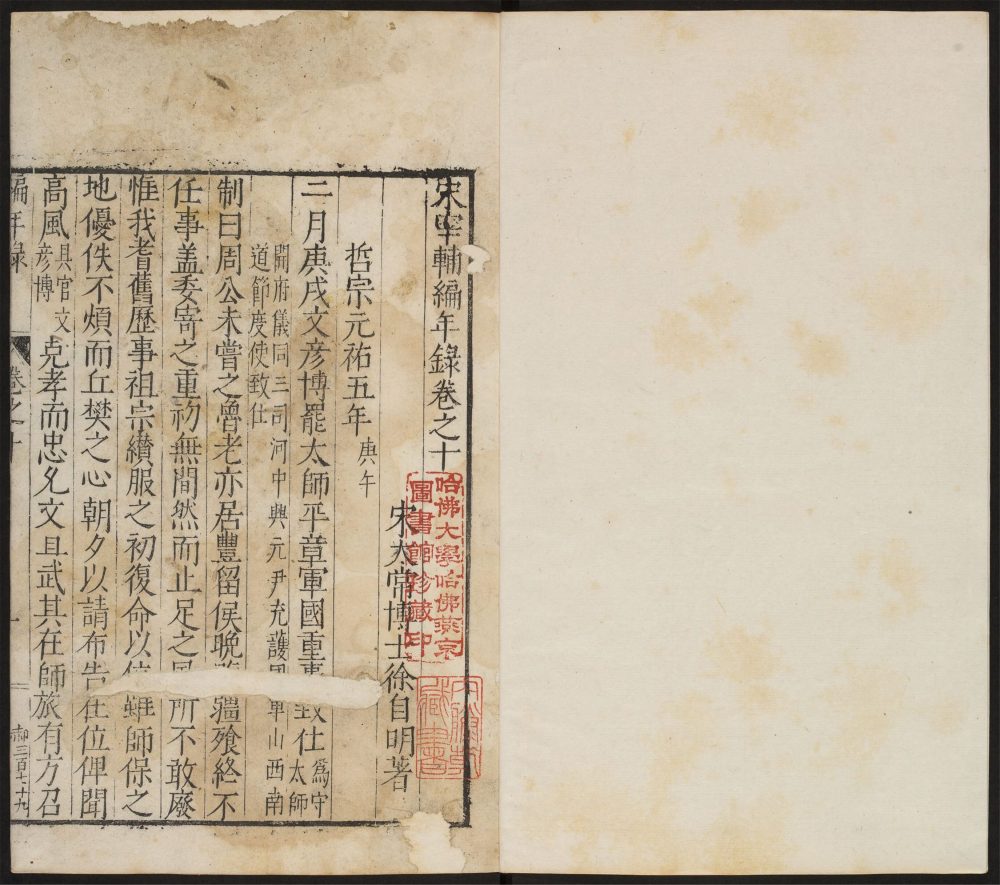 宋宰輔編年錄卷之十
哈佛大學哈佛燕京
圖書館珍藏印
宋太常博士徐自明著
哲宗元祐五年庚午
二月庚戌文彥博罷太師平章軍國重事致仕為守太師
開府儀同三司河中興元尹充護國軍山西南
道節度使致仕
制曰周公未嘗之魯老亦居豐留侯晚疆飧終不
任事蓋委寄之重初無間然而止足之風所不敢廢
惟我耆舊歷事祖宗纘服之初復命以雖師保之
地優佚不煩而丘樊之心朝夕以請布告在位俾聞
高風具官文彥博克孝而忠允文且武其在師旅有方召
編年錄 卷之十 一 三百七十九